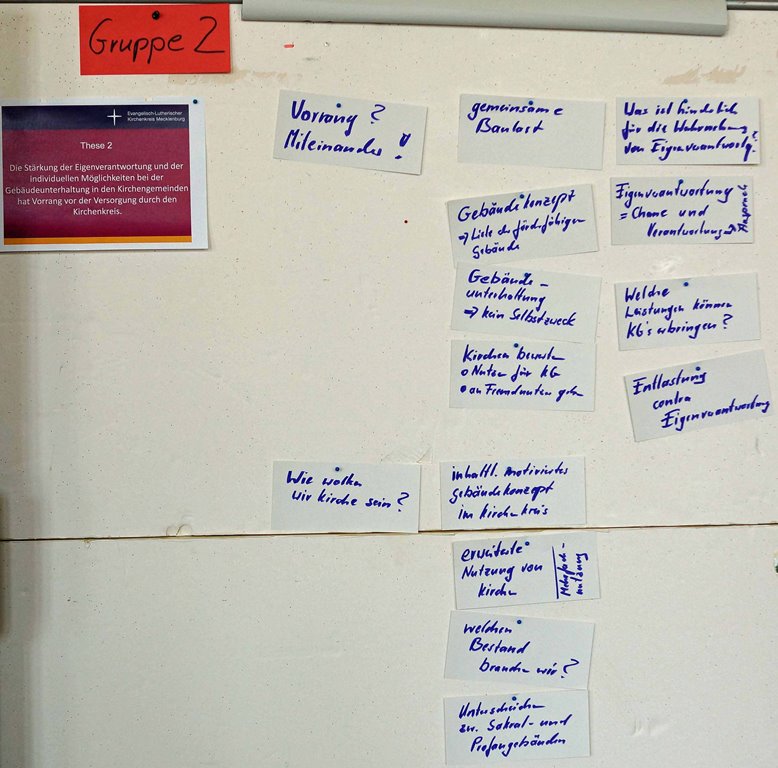 Gruppe 2
Evangelisch-Lutherischer
Kirchenkreis Mecklenburg
These 2
Die Stärkung der Eigenverantwortung und der
individuellen Möglichkeiten bei der
Gebäudeunterhaltung in den Kirchengemeinden
hat Vorrang vor der Versorgung durch den
Kirchenkreis.
Vorrang?
Miteinander!
Wie wollen
wir Kirche sein?
gemeinsame
Baulast
Gebäudekonzept
→ Liste der förderfähigen
Gebäude
Gebäude-
unterhaltung
→ kein Selbstzweck
Kirchen
o Nutzen für KG
o an Fremdnutzer geben
inhaltl. motiviertes
gebäudekonzept
im Kirchenkreis
erweiterte
Nutzung von
Kirchen
Mehrfach-
nutzung
welchen
Bestand
brauchen wir?
Unterscheiden
zw. Sakral- und
Profangebäuden
Was ist hinderlich
für die Wahrnehmung
von Eigenverantwortg?
Eigenverantwortung
= Chance und
Verantwortung
Anspruch
Welche
Leistungen können
KG's erbringen?
Entlastung
contra
Eigenverantwortung